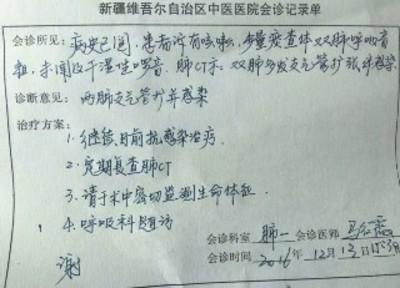 新疆维吾尔自治区中医医院会诊记录单
会诊所见：病史已阅，患者诉有咳嗽，少量痰查体双肺呼吸音
粗，未闻及干湿啰音。肺CT示：双肺多发支气管扩张伴感染
诊断意见：两肺支气管扩并感染
治疗方案：
1.继续目前抗感染治疗
2.定期复查肺CT
3.请于术中密切监测生命体征
4.呼吸科随访
谢
会诊科室 肺一 会诊医师
会诊时间 2016年12月13日